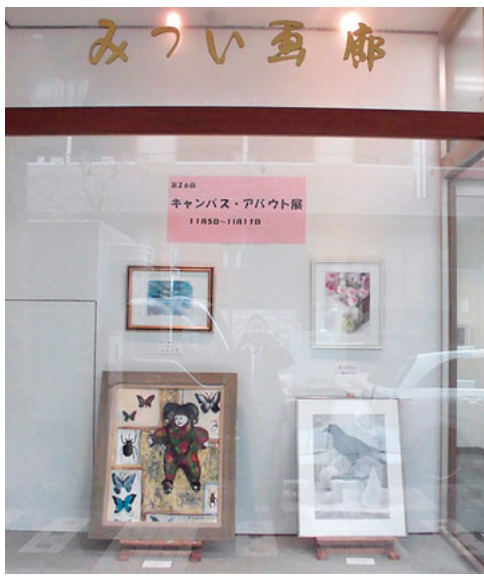 みつい画廊
第26回
キャンバス・アバウト展
11月5日～11月11日